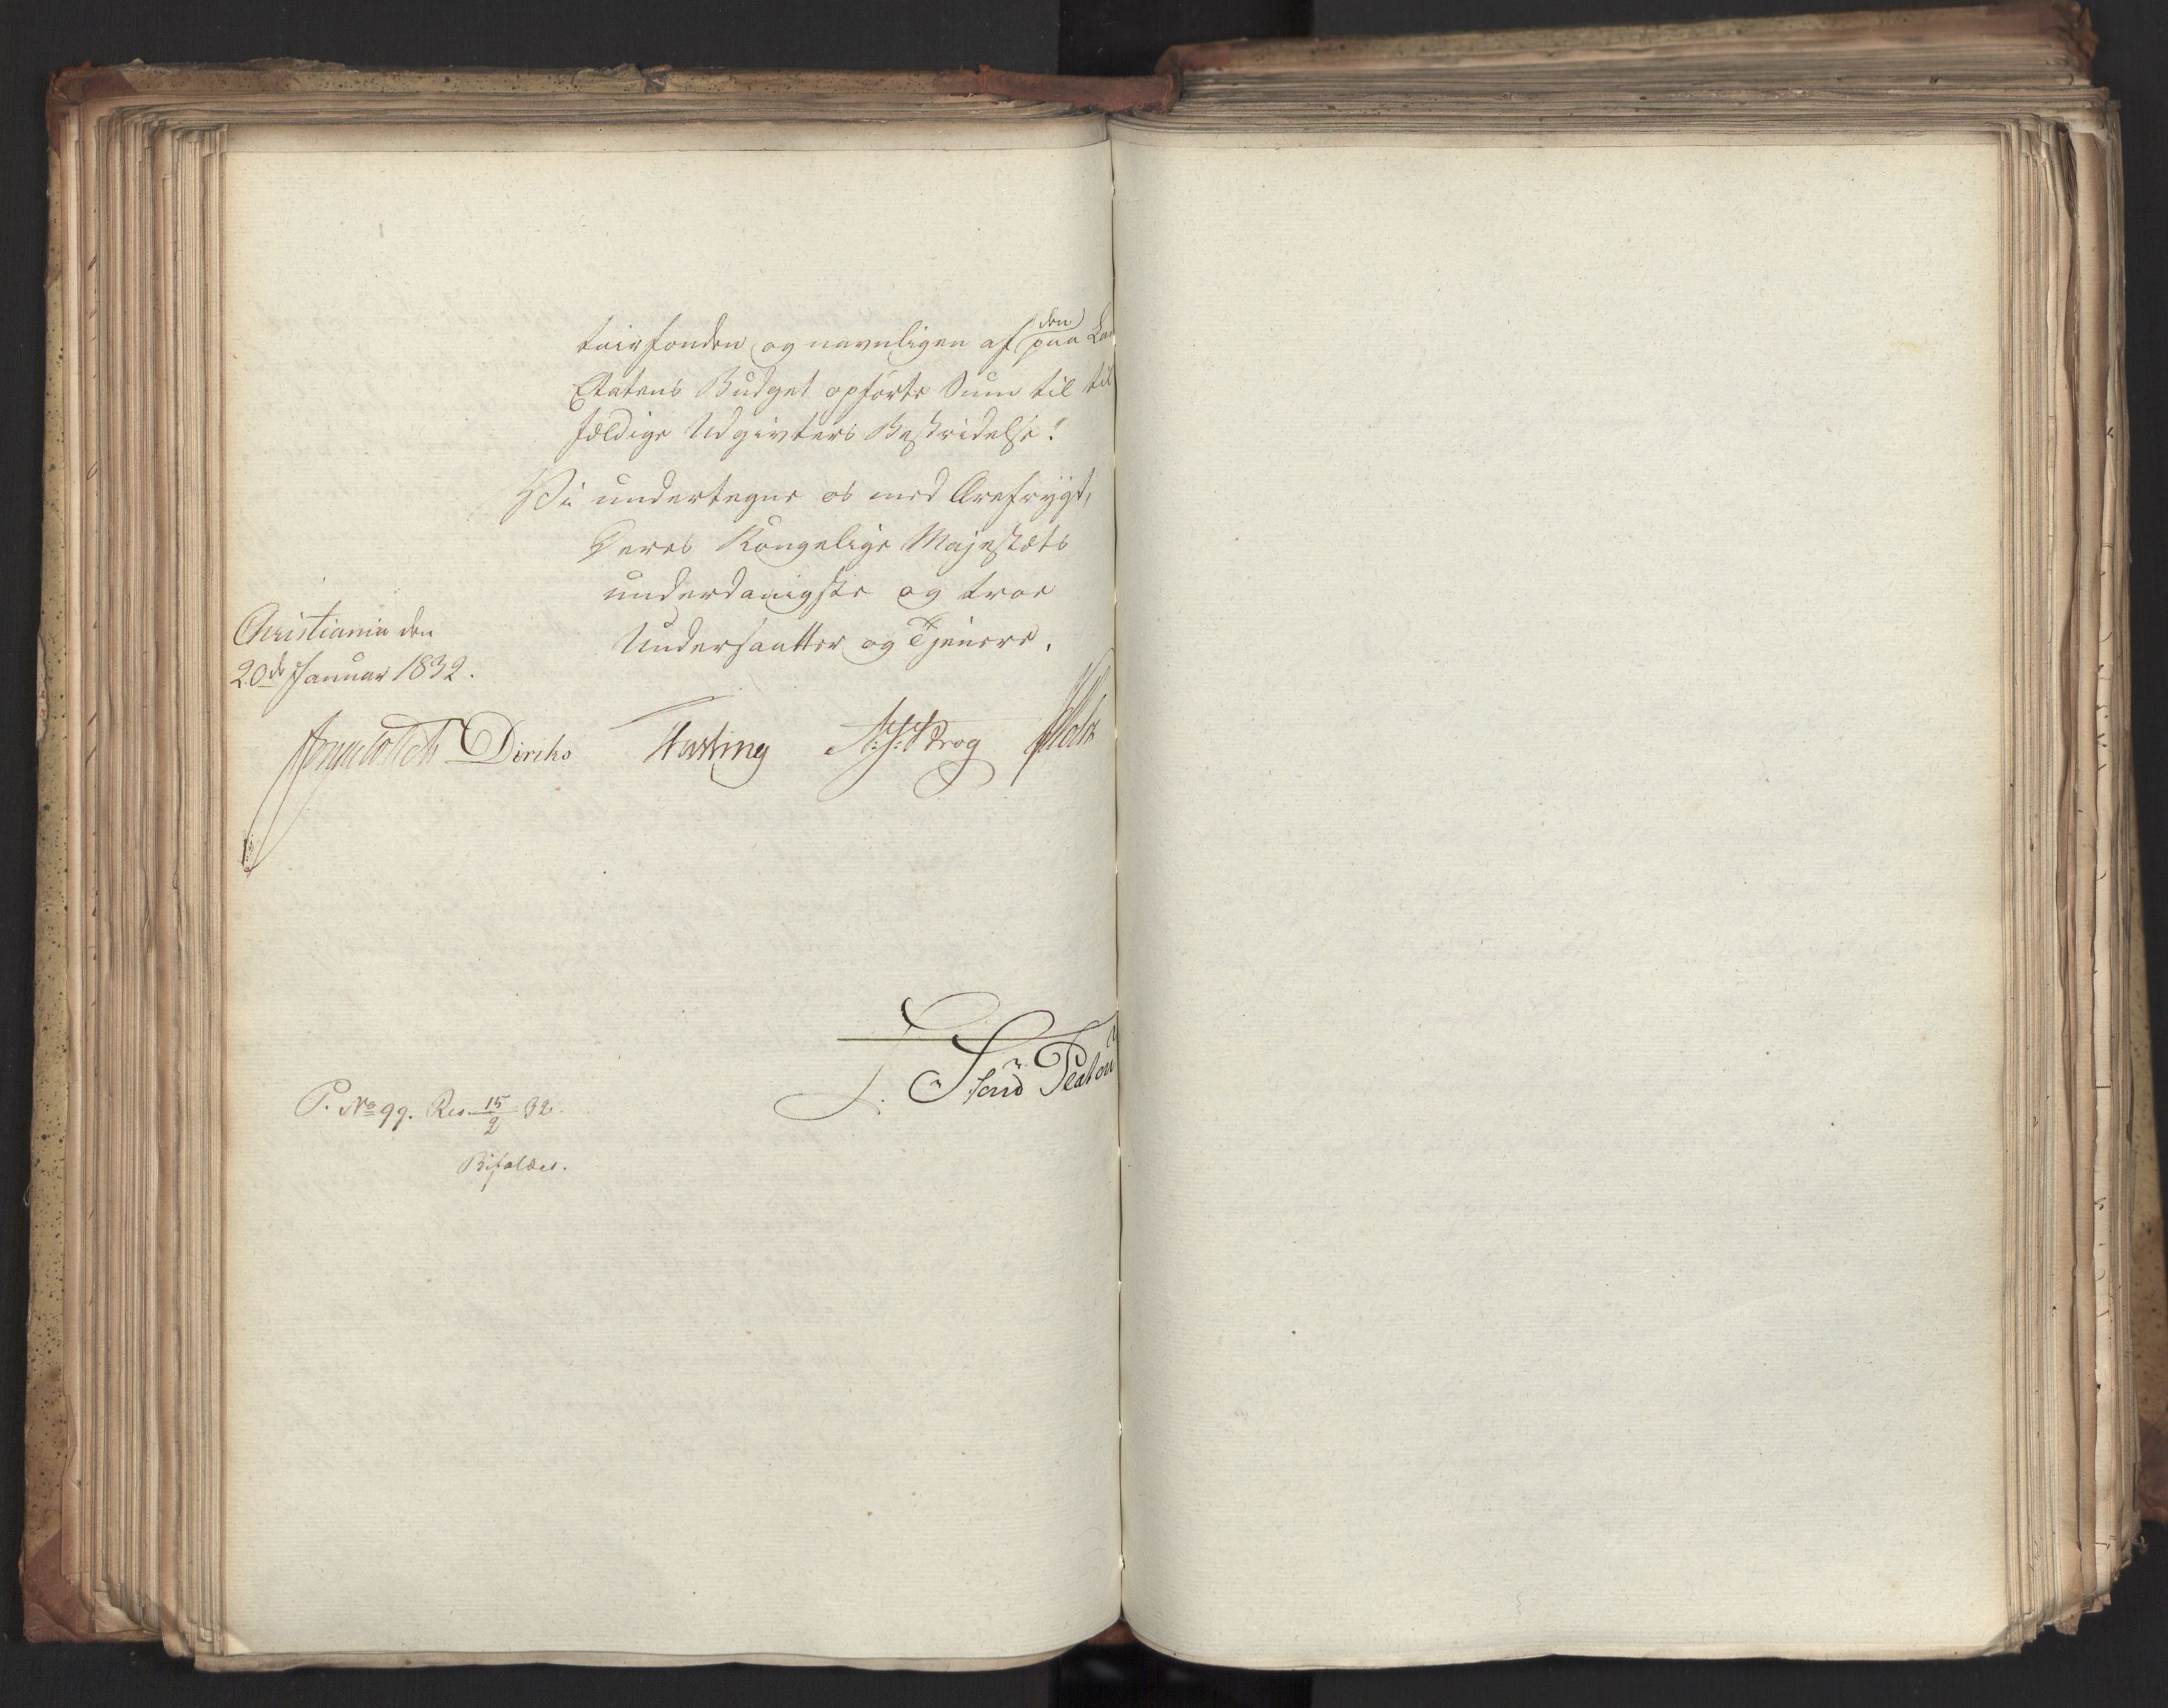 tairfonden og navnligen af den paa Lan
Etatens Budget opförte Sum til til
fældige Udgivters Bestridelse."
Vi undertegne os med Ærefrygt,
Deres Kongelige Majestæts
underdanigste og troe
Undersaatter og Tjenere.
Christiania den
20de Januar 1832.
Diriks Fasting Krog Holst
P. No 99. Res. 15/2 32.
Bifaldes.